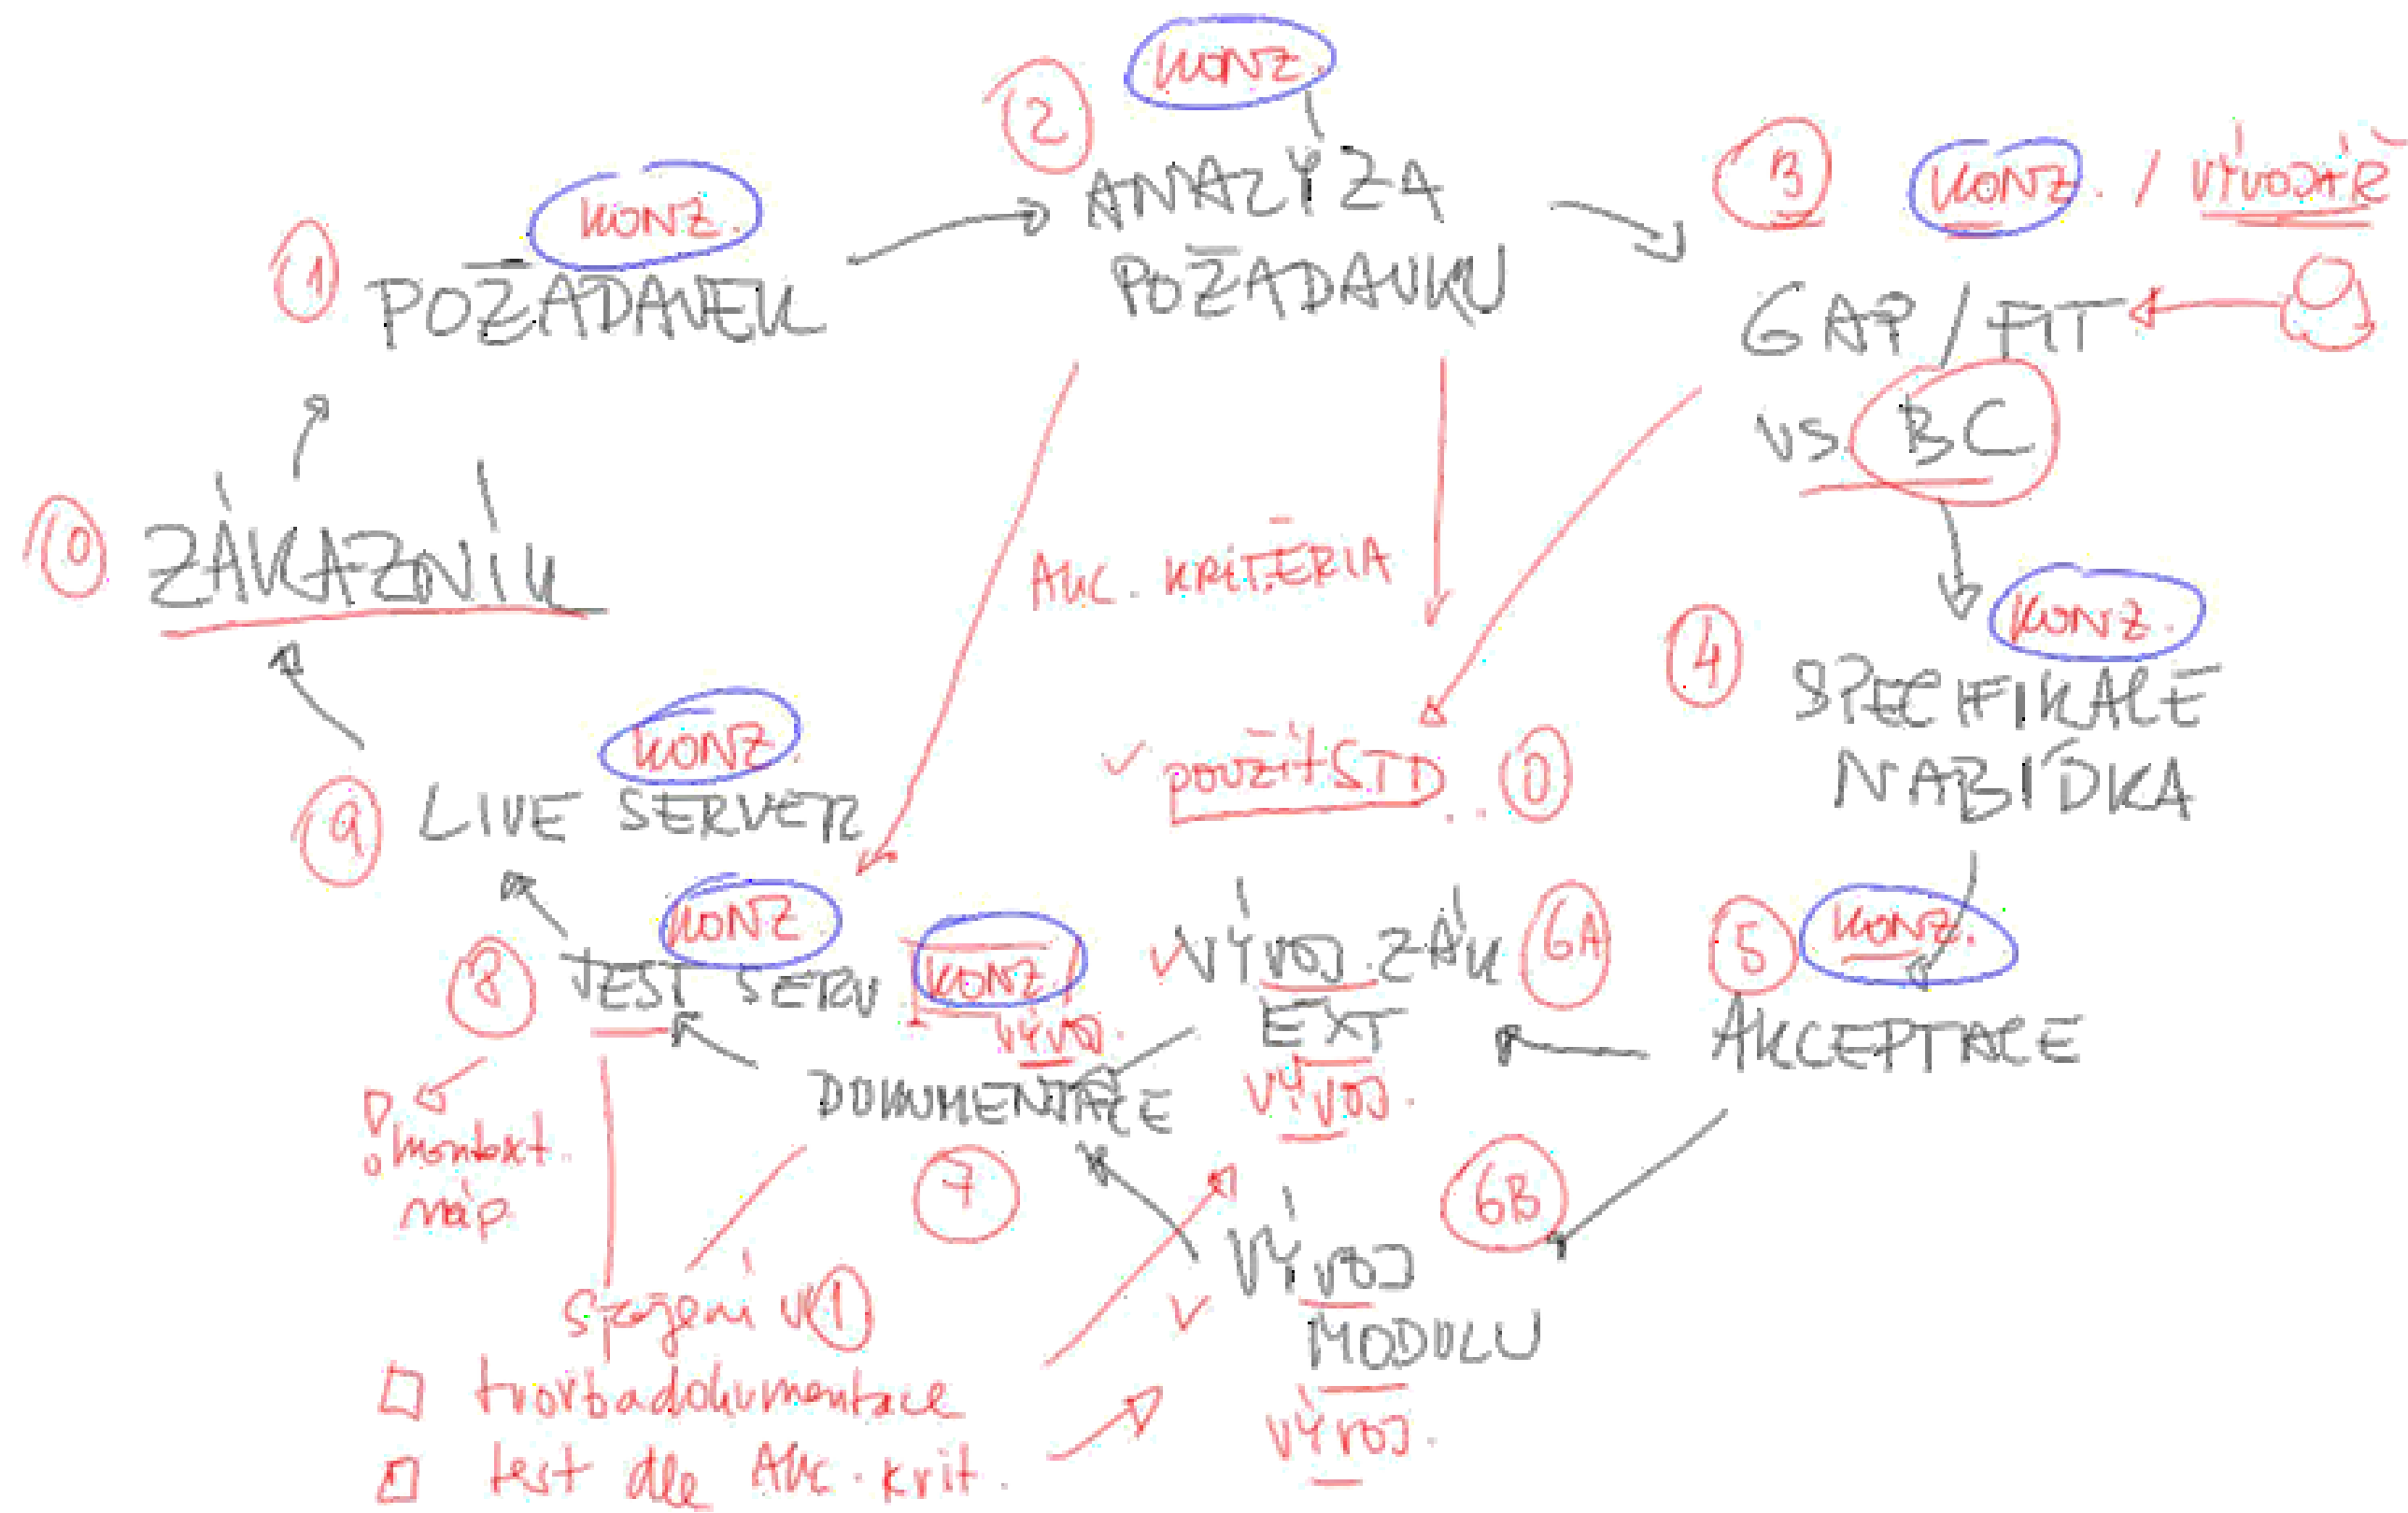 KONZ.
2
ANALÝZA
POŽADAVKU
KONZ.
1
POŽADAVEK
3
KONZ. / VÝVOJÁŘ
GAP / FIT
VS. BC
10
ZÁKAZNÍK
AKC. KRITÉRIA
KONZ.
4
SPECIFIKACE
NABÍDKA
KONZ.
9
LIVE SERVER
✓ použít STD .. 0
KONZ
8
TEST SERV
KONZ. /
VÝVOJ.
✓ VÝVOJ. ZÁK
EXT
6A
VÝVOJ.
5
KONZ.
AKCEPTACE
DOKUMENTACE
7
! kontext.
náp.
6B
✓ VÝVOJ
MODULU
VÝVOJ.
spojení v 1
tvorba dokumentace
test dle Akc. krit.